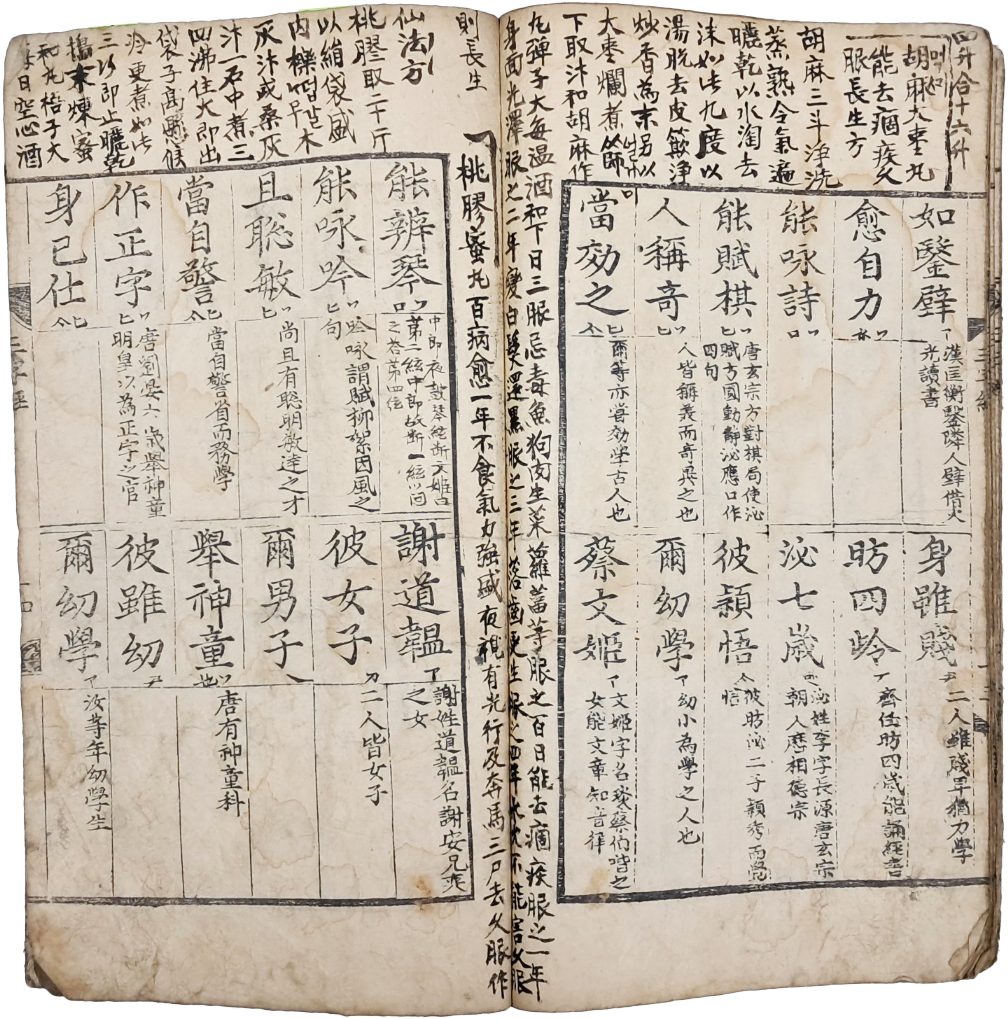 四升合十六升
胡麻大棗丸
能去痼疾久
服長生方
胡麻三斗淨洗
蒸熟令氣遍
曬乾以水淘去
沫如此九度以
湯脫去皮簸淨
炒香為末另以
大棗爛煮以篩
下取汁和胡麻作
丸彈子大每温酒和下日三服忌毒魚狗肉生菜蘿葍等服之百日能去痼疾服之一年
身面光澤服之二年變白髮還黑服之三年落齒更生服之四年水火不能害久服
則長生
如鑿壁
漢匡衡鑿隣人壁借火
光讀書
身雖賤
二人雖賤畢猶力學
愈自力
昉四齡
齊任昉四歲能誦經書
能咏詩
泌七歲
泌姓李字長源唐玄宗
朝人應相德宗
能賦棋
唐玄宗方對棋局使泌
賦方圓動靜泌應口作
四句
彼穎悟
彼昉泌二子穎秀而覺
悟
人稱奇
人皆稱美而奇異之也
爾幼學
幼小為學之人也
當効之
爾等亦當効學古人也
蔡文姬
文姬字名琰蔡伯喈之
女能文章知音律
桃膠蜜丸百病愈一年不食氣力強盛夜視有光行及奔馬三尸去久服作
仙法方
桃膠取二十斤
以絹袋盛
內櫟木
灰汁或桑灰
汁一石中煮三
四沸住火即出
袋子高懸候
冷更煮如此
三次即止曬乾
搗末煉蜜
和丸梧子大
每日空心酒
能辨琴
中郎夜鼓琴絃斷文姬曰
第二絃中郎故斷一絃以問
之答第四絃
謝道韞
謝姓道韞名謝安兄奕
之女
能咏吟
吟咏謂賦柳絮因風之
句
彼女子
二人皆女子
且聡敏
尚且有聡明敏達之才
爾男子
當自警
當自警省而務學
舉神童
唐有神童科
作正字
唐劉晏六歲舉神童
明皇以為正字之官
彼雖幼
身已仕
爾幼學
汝等年幼學生
三字經